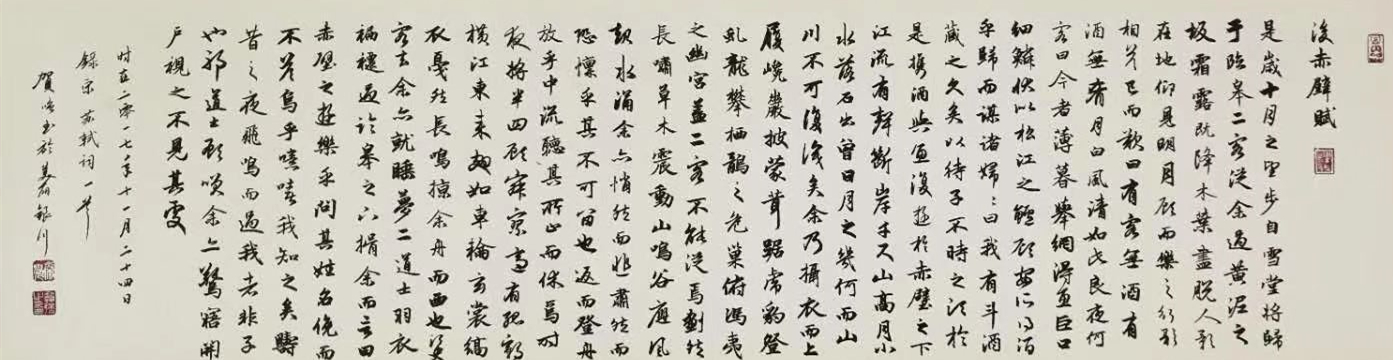 後赤壁賦
是歲十月之望步自雪堂將歸
于臨皋二客從余過黃泥之
坂霜露既降木葉盡脫人影
在地仰見明月顧而樂之行歌
相答已而歎曰有客無酒有
酒無肴月白風清如此良夜何
客曰今者薄暮舉網得魚巨口
細鱗狀似松江之鱸顧安所得酒
乎歸而謀諸婦〻曰我有斗酒
藏之久矣以待子不時之須於
是携酒與魚復遊於赤壁之下
江流有聲斷岸千尺山高月小
水落石出曾日月之幾何而山
川不可復識矣余乃攝衣而上
履巉巖披蒙茸踞虎豹登
虬龍攀栖鶻之危巢俯馮夷
之幽宮蓋二客不能從焉劃然
長嘯草木震動山鳴谷應風
起水涌余亦悄然而悲肅然而
恐懍乎其不可留也返而登舟
放乎中流聽其所止而休焉時
夜將半四顧寂寥適有孤鶴
橫江東來翅如車輪玄裳縞
衣戛然長鳴掠余舟而西也須臾
客去余亦就睡夢二道士羽衣
蹁躚過臨皋之下揖余而言曰
赤壁之遊樂乎問其姓名俛而
不答烏乎噫嘻我知之矣疇
昔之夜飛鳴而過我者非子
也邪道士顧笑余亦驚寤開
戶視之不見其處
時在二零一七年十一月二十四日
錄宋蘇軾詞一首
賀 書於 銀川